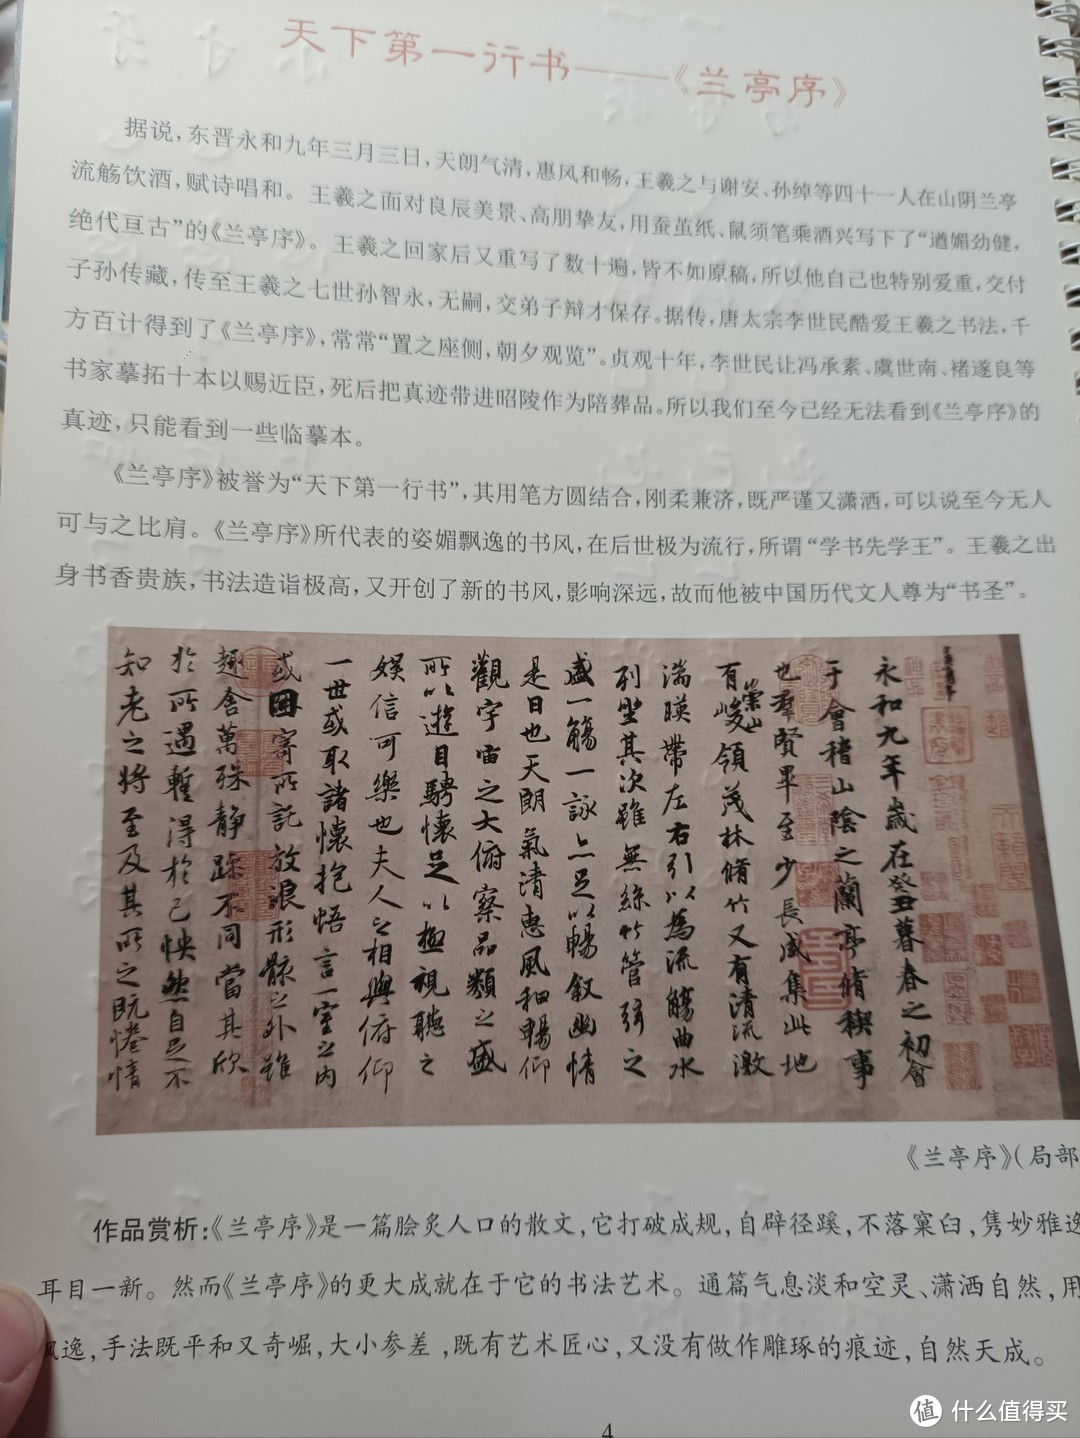 天下第一行书——《兰亭序》
据说，东晋永和九年三月三日，天朗气清，惠风和畅，王羲之与谢安、孙绰等四十一人在山阴兰亭
流觞饮酒，赋诗唱和。王羲之面对良辰美景、高朋挚友，用蚕茧纸、鼠须笔乘酒兴写下了“遒媚劲健，
绝代亘古”的《兰亭序》。王羲之回家后又重写了数十遍，皆不如原稿，所以他自己也特别爱重，交付
子孙传藏，传至王羲之七世孙智永，无嗣，交弟子辩才保存。据传，唐太宗李世民酷爱王羲之书法，千
方百计得到了《兰亭序》，常常“置之座侧，朝夕观览”。贞观十年，李世民让冯承素、虞世南、褚遂良等
书家摹拓十本以赐近臣，死后把真迹带进昭陵作为陪葬品。所以我们至今已经无法看到《兰亭序》的
真迹，只能看到一些临摹本。
《兰亭序》被誉为“天下第一行书”，其用笔方圆结合，刚柔兼济，既严谨又潇洒，可以说至今无人
可与之比肩。《兰亭序》所代表的姿媚飘逸的书风，在后世极为流行，所谓“学书先学王”。王羲之出
身书香贵族，书法造诣极高，又开创了新的书风，影响深远，故而他被中国历代文人尊为“书圣”。
永和九年歲在癸丑暮春之初會
于會稽山陰之蘭亭脩稧事
也羣賢畢至少長咸集此地
有崇山峻領茂林脩竹又有清流激
湍暎帶左右引以為流觴曲水
列坐其次雖無絲竹管弦之
盛一觴一詠亦足以暢叙幽情
是日也天朗氣清惠風和暢仰
觀宇宙之大俯察品類之盛
所以遊目騁懷足以極視聽之
娛信可樂也夫人之相與俯仰
一世或取諸懷抱悟言一室之內
或因寄所託放浪形骸之外雖
趣舍萬殊靜躁不同當其欣
於所遇暫得於己怏然自足不
知老之將至及其所之既惓情
《兰亭序》（局部
作品赏析：《兰亭序》是一篇脍炙人口的散文，它打破成规，自辟径蹊，不落窠臼，隽妙雅逸
耳目一新。然而《兰亭序》的更大成就在于它的书法艺术。通篇气息淡和空灵、潇洒自然，用
风逸，手法既平和又奇崛，大小参差，既有艺术匠心，又没有做作雕琢的痕迹，自然天成。
4
值 什么值得买